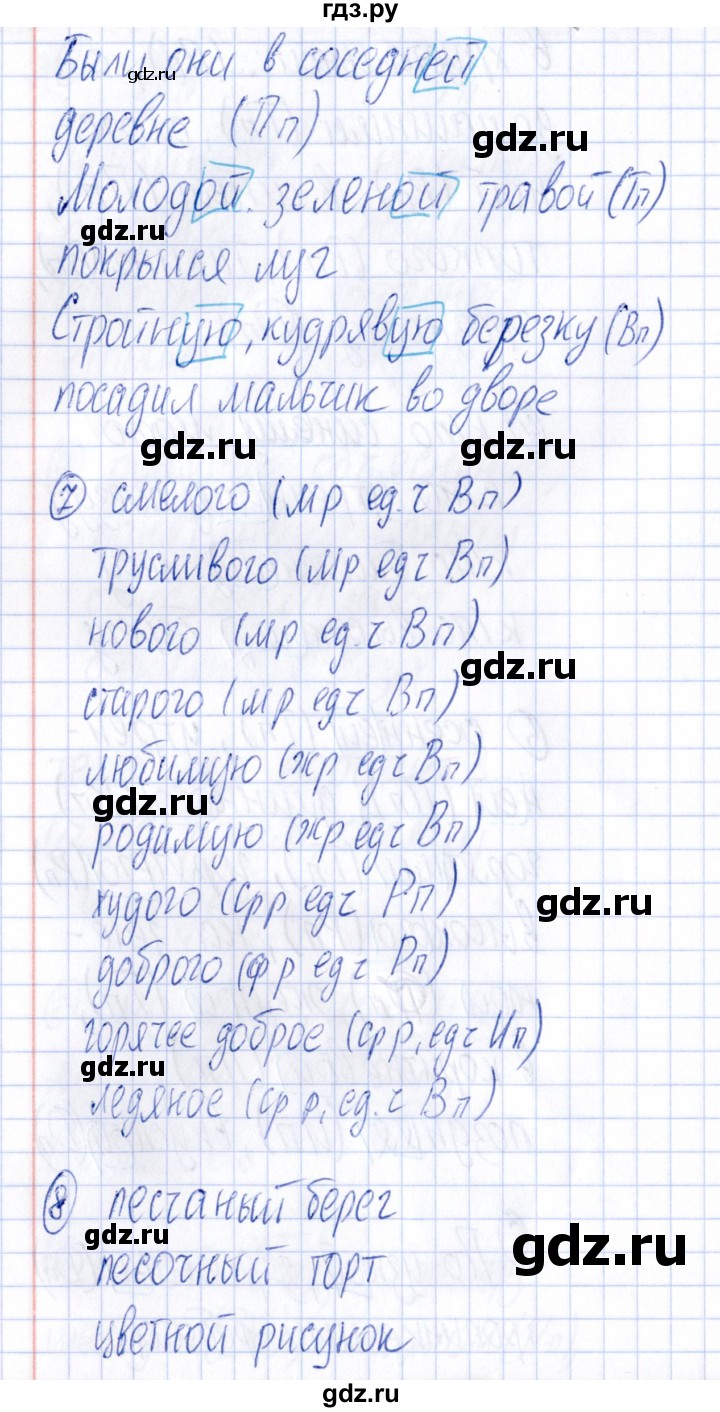 гдз.ру
Были они в соседней
деревне (Пп)
gdz.ru
Молодой. зеленой травой (Тп)
gdz.ru
покрылся луг
Стройную, кудрявую березку (Вп)
посадил мальчик во дворе
gdz.ru gdz.ru
7 смелого (мр ед.ч Вп)
трусливого (мр едч Вп)
нового (мр ед.ч Вп)
gdz.ru
старого (мр едч Вп)
любимую (жр едч Вп)
gdz.ru
родимую (жр едч Вп)
худого (срр едч Рп)
gdz.ru
доброго (фр едч Рп)
горячее доброе (ср р, едч Ип)
gdz.ru
ледяное (ср р, ед.ч Вп)
8 песчаный берег
gdz.ru
песочный торт
gdz.ru
цветной рисунок
gdz.ru